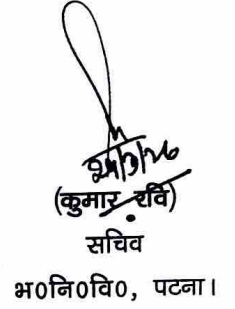 (कुमार रवि)
सचिव
भ०नि०वि०, पटना।